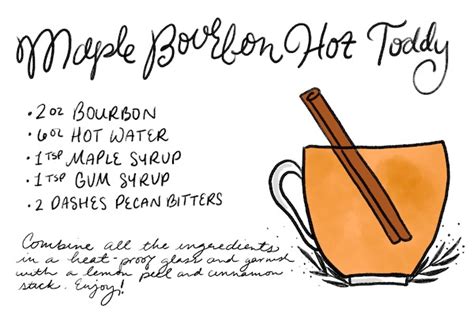 Maple Bourbon Hot Toddy
• 2 oz BOURBON
• 6 oz HOT WATER
• 1 TSP MAPLE SYRUP
• 1 TSP GUM SYRUP
• 2 DASHES PECAN BITTERS
Combine all the ingredients
in a heat-proof glass and garnish
with a lemon peel and cinnamon
stick. Enjoy!